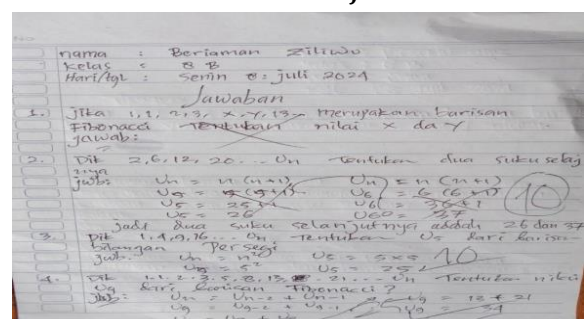 nama : Beriaman Ziliwu
Kelas : 8 B
Hari/tgl : Senin 8 juli 2024
Jawaban
1. Jika 1, 1, 2, 3, x, y, 13 merupakan barisan
Fibonacci Tentukan nilai x da y
jawab:
2. Dit 2, 6, 12, 20 ... Un Tentukan dua suku selaj
jwb: Un = n (n+1) Un = n (n+1)
U5 = 5 (5+1) U6 = 6 (6+1)
U5 = 25+1 U6 = 36+1
U5 = 26 U6 = 37
10
jadi dua suku selanjutnya adalah 26 dan 37
3. Dit 1, 4, 9, 16 ... Un Tentukan U5 dari barisan
bilangan Persegi
jwb. Un = n² U5 = 5x5
U5 = 5² U5 = 25
10
4. Dit 1. 1. 2. 3. 5. 8. 13. 21 ... Un Tentukan nilai
U9 dari barisan Fibonacci?
jwb: Un = Un-2 + Un-1 U9 = 13 + 21
U9 = U9-2 + U9-1 U9 = 34